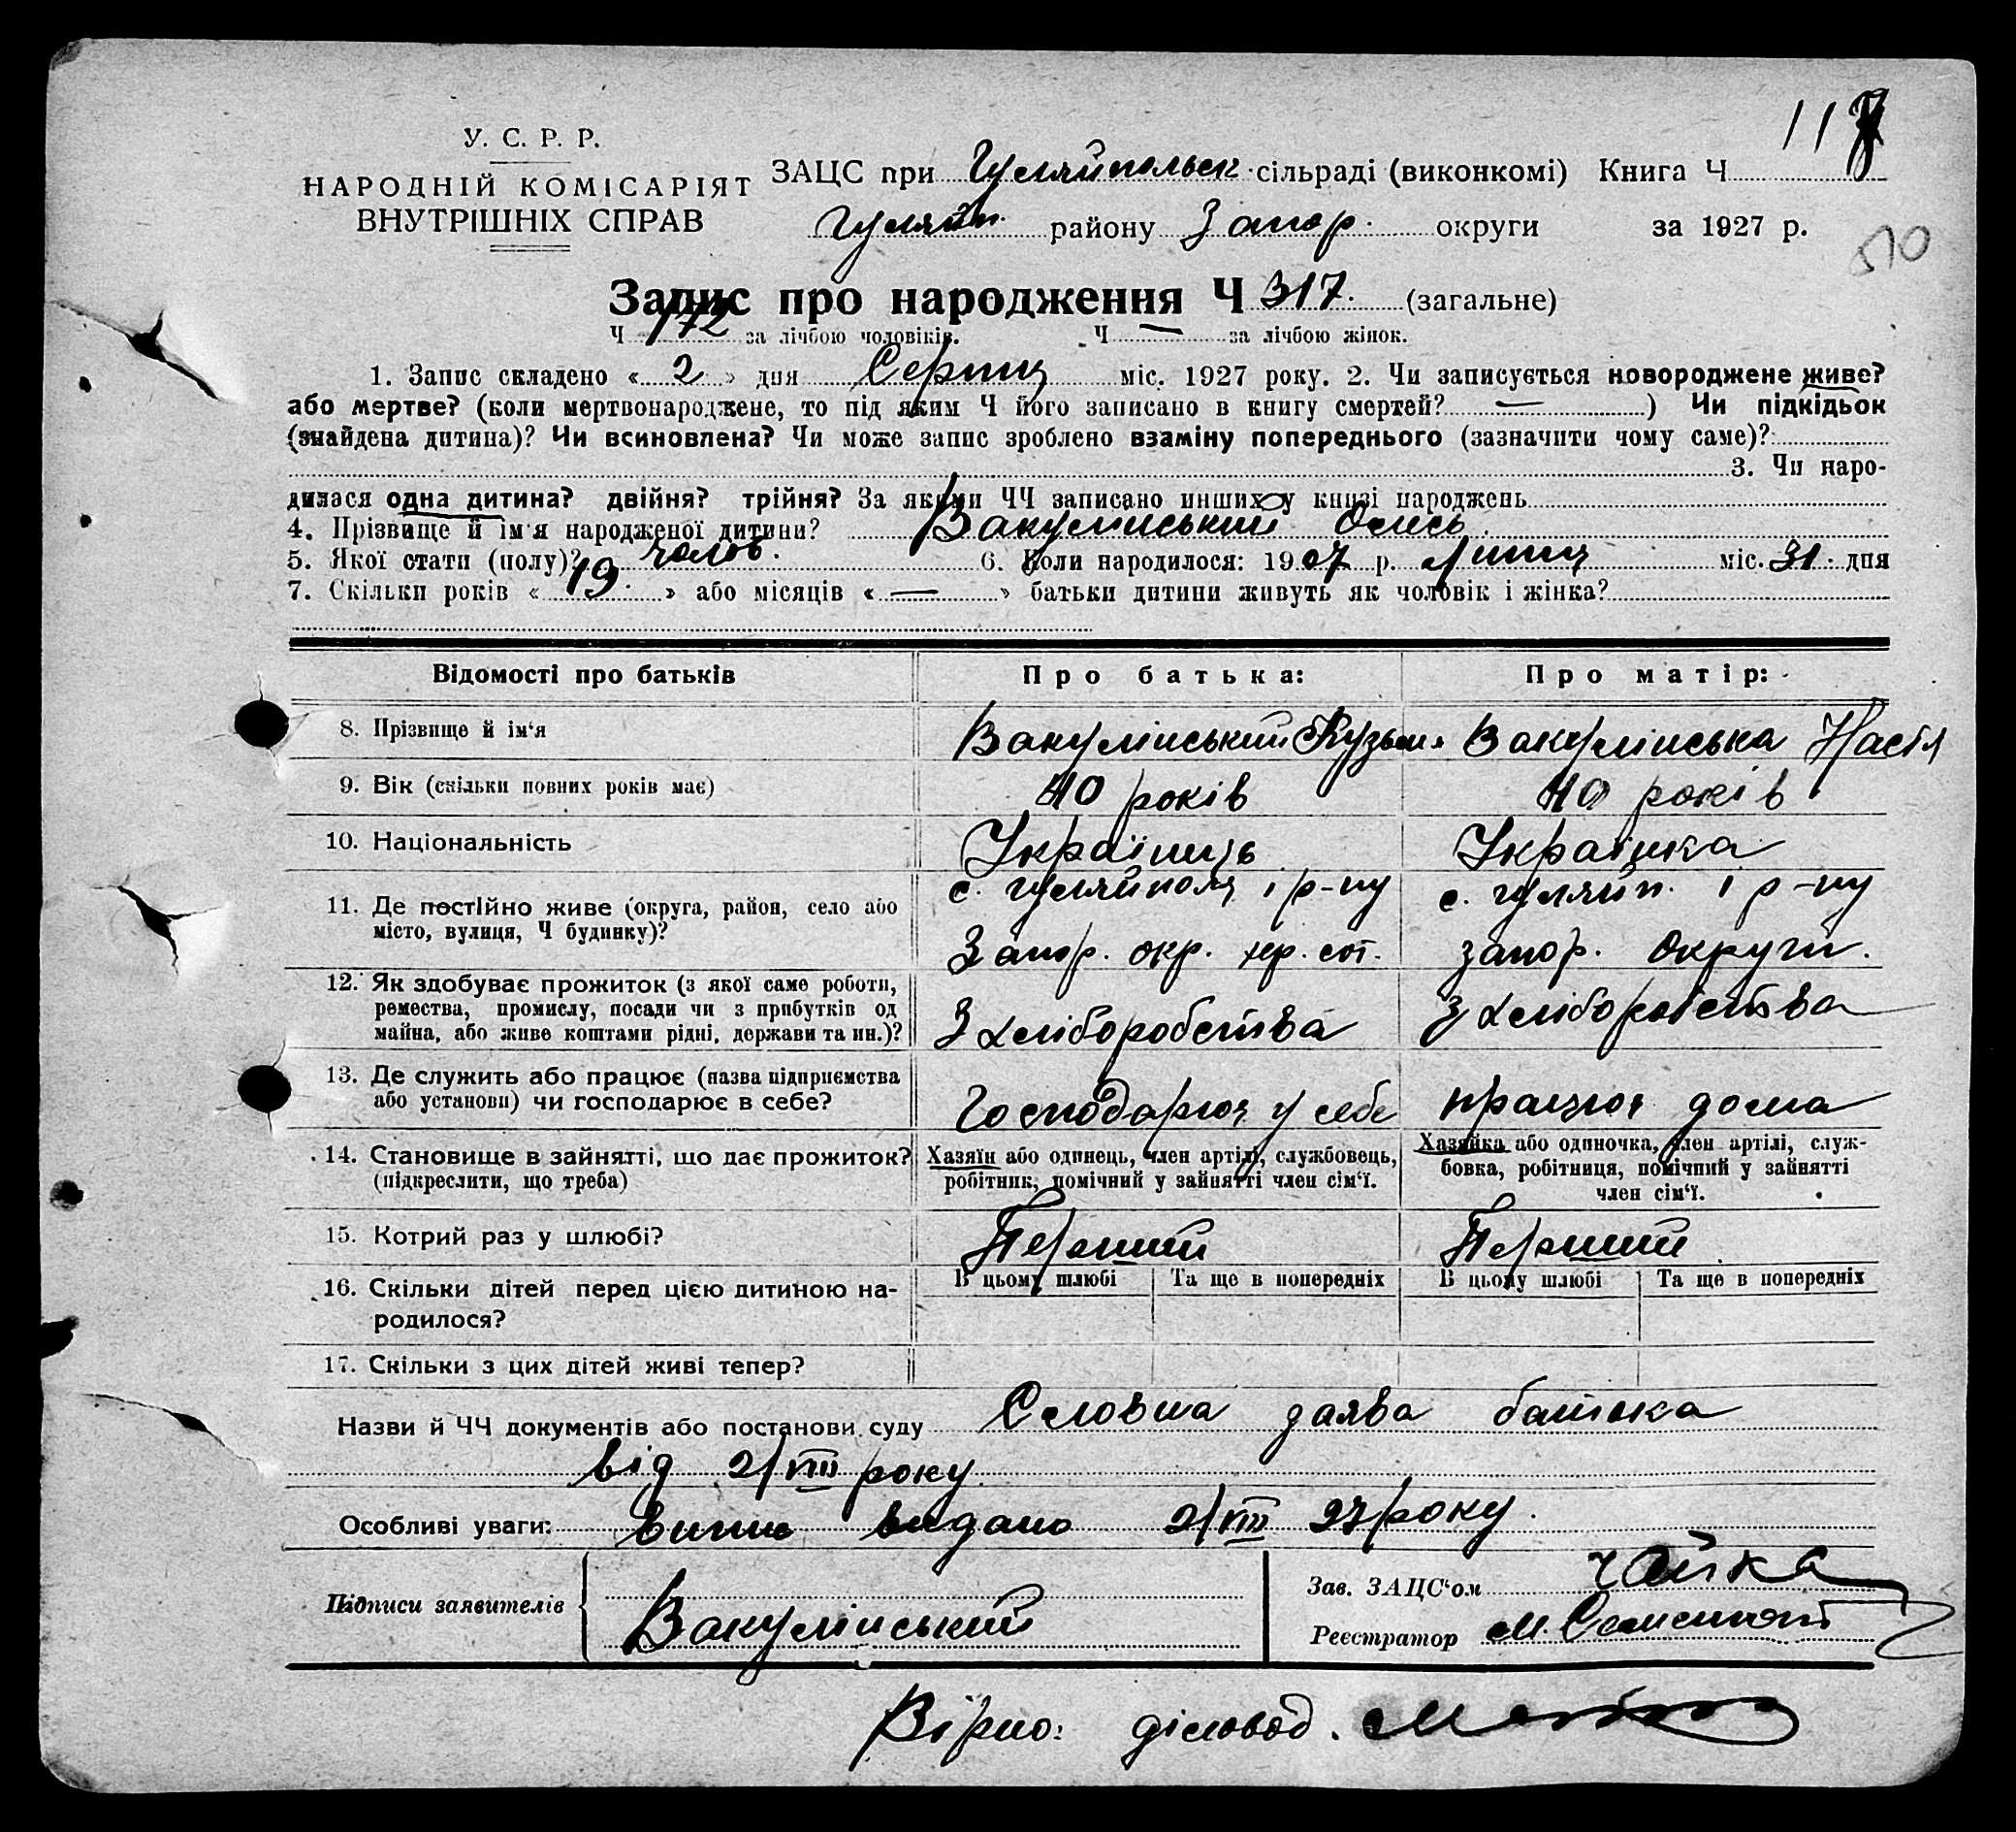 117
У. С. Р. Р.
НАРОДНІЙ КОМІСАРІЯТ
ВНУТРІШНІХ СПРАВ
ЗАЦС при Гуляйпольськ. сільраді (виконкомі) Книга Ч
Гуляйп. району Запор. округи за 1927 р.
510
Запис про народження Ч 317. (загальне)
Ч 172 за лічбою чоловіків. Ч — за лічбою жінок.
1. Запис складено « 2 » дня Серпня міс. 1927 року. 2. Чи записується новороджене живе?
або мертве? (коли мертвонароджене, то під яким Ч його записано в книгу смертей? — ) Чи підкідьок
(знайдена дитина)? Чи всиновлена? Чи може запис зроблено взаміну попереднього (зазначити чому саме)?
3. Чи наро-
дилася одна дитина? двійня? трійня? За якими ЧЧ записано инших у книзі народжень
4. Прізвище й ім'я народженої дитини? Вакулінський Олесь.
5. Якої стати (полу)? чолов. 6. Коли народилося: 1907 р. Липня міс. 31. дня
7. Скільки років « 19. » або місяців « — » батьки дитини живуть як чоловік і жінка?
Відомості про батьків Про батька: Про матір:
8. Прізвище й ім'я Вакулінський Кузьма Вакулінська Настя
9. Вік (скільки повних років має) 40 років 40 років
10. Національність Українець Українка
11. Де постійно живе (округа, район, село або с. Гуляйполя, р-ну с. Гуляйп. р-ну
місто, вулиця, Ч будинку)? Запор. окр. запор. округи.
12. Як здобуває прожиток (з якої саме роботи,
ремества, промислу, посади чи з прибутків од З хліборобства З хліборобства
майна, або живе коштами рідні, держави та ин.)?
13. Де служить або працює (назва підприємства
або установи) чи господарює в себе? Господарює у себе працює дома
14. Становище в зайнятті, що дає прожиток? Хазяїн або одинець, член артілі, службовець, Хазяйка або одиночка, член артілі, служ-
(підкреслити, що треба) робітник, помічний у зайнятті член сім'ї. бовка, робітниця, помічний у зайнятті
член сім'ї.
15. Котрий раз у шлюбі? Перший Перший
16. Скільки дітей перед цією дитиною на- В цьому шлюбі Та ще в попередніх В цьому шлюбі Та ще в попередніх
родилося?
17. Скільки з цих дітей живі тепер?
Назви й ЧЧ документів або постанови суду Словна заява батька
від 2/VIII року
Особливі уваги: випис видано 2/VIII 27 року.
Підписи заявителів Вакулінський
Зав. ЗАЦС'ом Чайка
Реєстратор М.
Вірно: діловод.